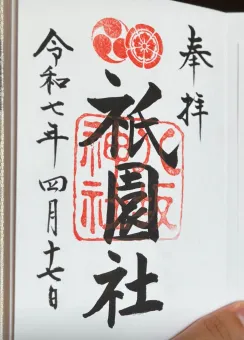 奉拝
八坂神社
祇園社
令和七年四月十七日